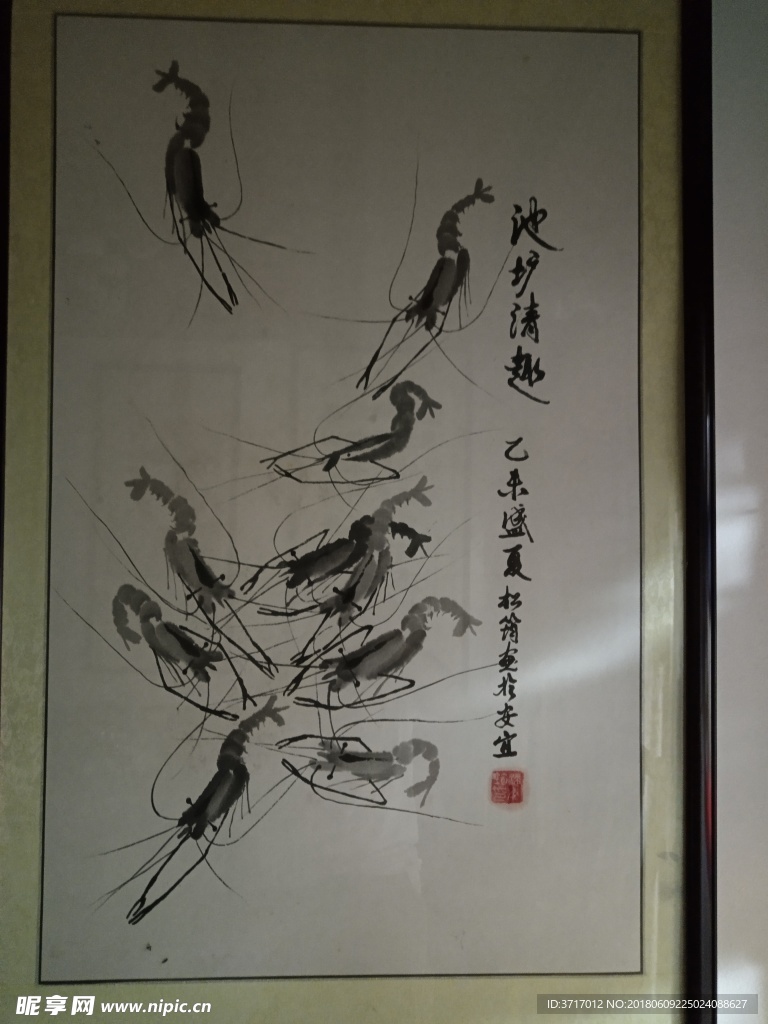 池圹清趣
乙未盛夏松筠画於安宜
昵享网 www.nipic.cn
ID:3717012 NO:20180609225024088627